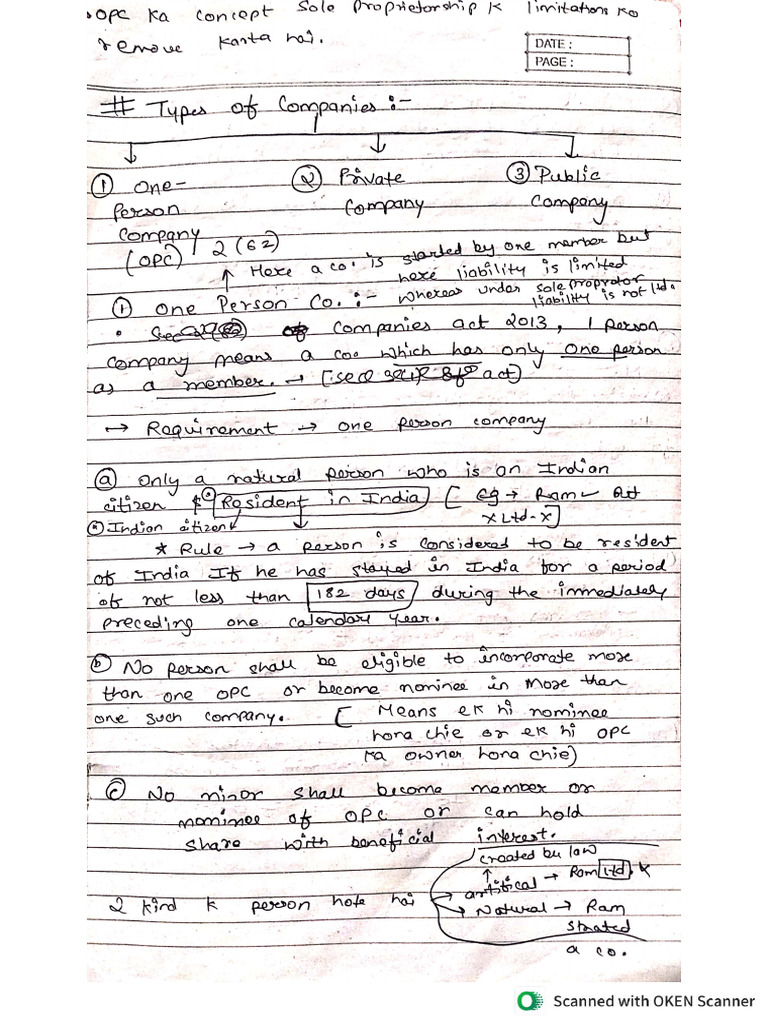 OPC ka concept Sole Proprietorship k limitations ko
remove karta hai.
DATE :
PAGE :
# Types of Companies :-
① One-
Person
Company
(OPC) 2(62)
② Private
Company
③ Public
Company
Here a co. is started by one member but
here liability is limited
whereas under sole proprator
liability is not ltd.
① One Person Co. :-
• Companies act 2013, 1 person
company means a co. which has only one person
as a member. →
↦ Requirement → one person company
ⓐ Only a natural person who is an Indian
citizen & Resident in India [ eg → Ram ✓
x Ltd - x ]
Indian citizen
* Rule → a person is considered to be resident
of India If he has stayed in India for a period
of not less than 182 days during the immediately
preceding one calendar year.
ⓑ No person shall be eligible to incorporate more
than one OPC or become nominee in more than
one such company. [ Means ek hi nominee
hona chie or ek hi OPC
ka owner hona chie)
ⓒ No minor shall become member or
nominee of OPC or can hold
share with beneficial interest.
created by law
↑
→ artifical → Ram Ltd
2 kind k person hote hai
→ Natural → Ram
staated
a co.
Scanned with OKEN Scanner